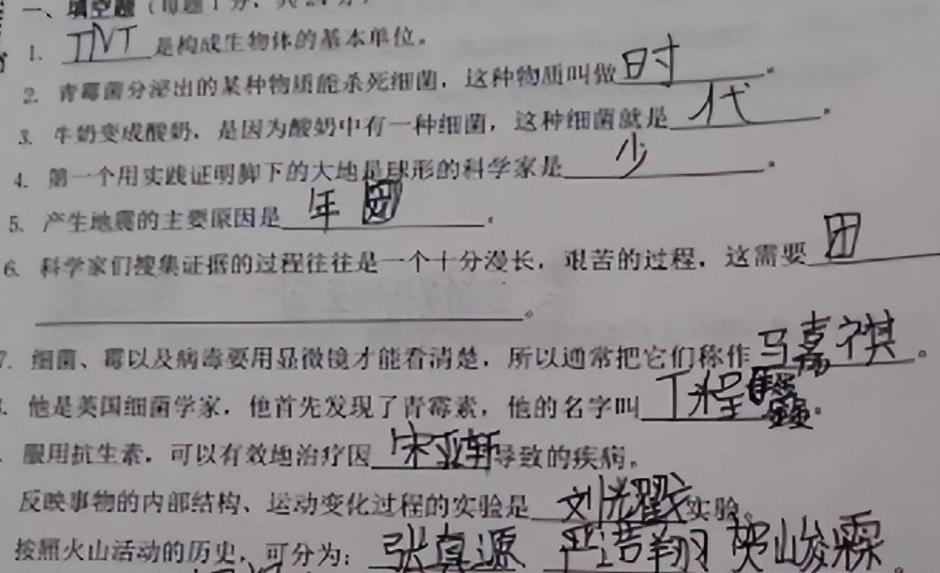 一、填空题（每题1分，共24分）
1. TNT 是构成生物体的基本单位。
2. 青霉菌分泌出的某种物质能杀死细菌，这种物质叫做 时 。
3. 牛奶变成酸奶，是因为酸奶中有一种细菌，这种细菌就是 代 。
4. 第一个用实践证明脚下的大地是球形的科学家是 少 。
5. 产生地震的主要原因是 年 团 。
6. 科学家们搜集证据的过程往往是一个十分漫长，艰苦的过程，这需要 团
。
7. 细菌、霉以及病毒要用显微镜才能看清楚，所以通常把它们称作 马嘉祺 。
. 他是美国细菌学家，他首先发现了青霉素，他的名字叫 丁程鑫 。
. 服用抗生素，可以有效地治疗因 宋亚轩 导致的疾病。
反映事物的内部结构、运动变化过程的实验是 刘耀 实验。
按照火山活动的历史，可分为： 张真源 严浩翔 贺峻霖 。